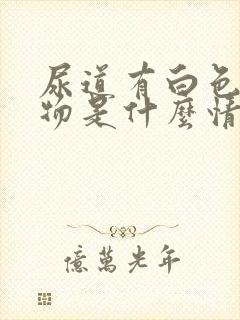 尿道有白色
物是什麼情
億萬光年